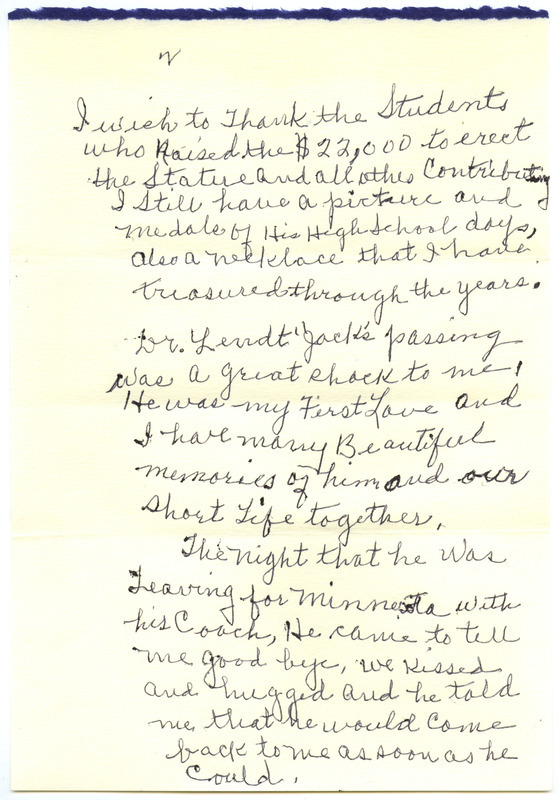 2
I wish to Thank the Students
who Raised the $22,000 to erect
the Statue and all other Contributing
I Still have a picture and
medals of His High School days,
also a necklace that I have
treasured through the years.
Dr. Lendt Jack's passing
was a great shock to me!
He was my First Love and
I have many Beautiful
memories of him and our
short Life together.
The night that he was
Leaving for Minnesota with
his Coach, He came to tell
me good bye, we kissed
and hugged and he told
me that he would come
back to me as soon as he
Could.